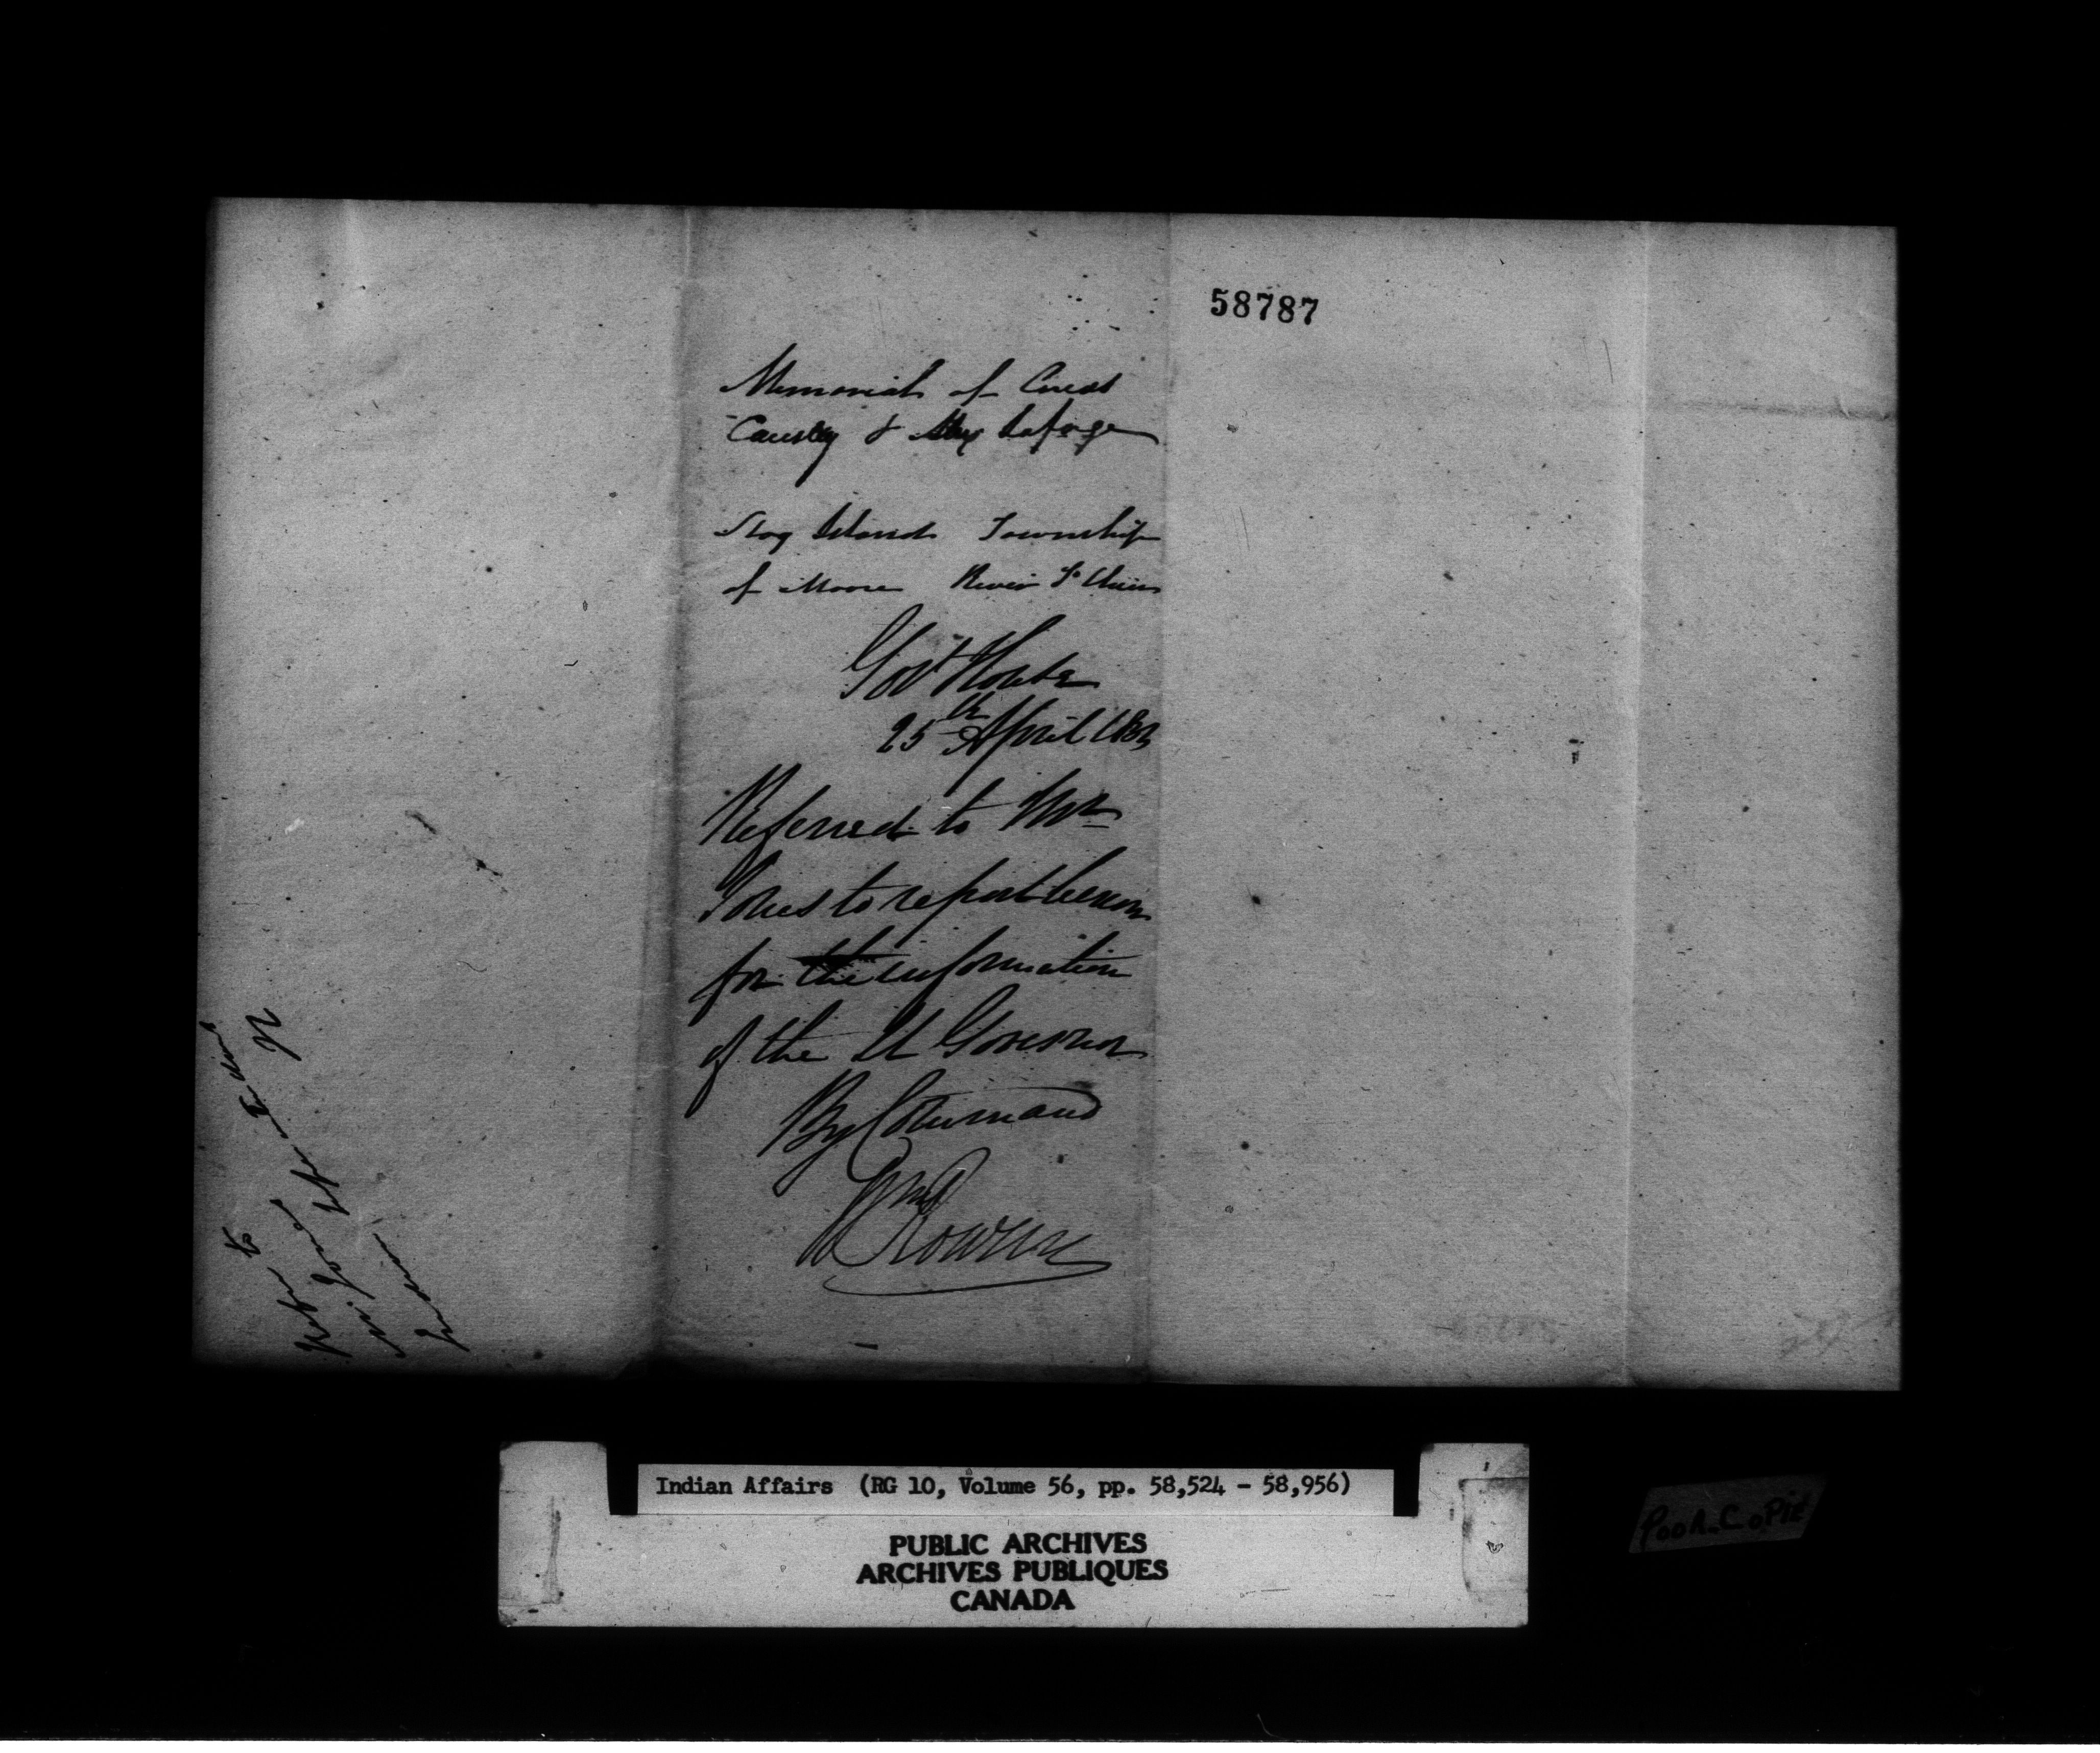 58787
Memorial of
Causley & Alex Laforge
Stag Island Township
of Moore River St Clair
Govt House
25th April 183
Referred to Mr
Jones to report hereon
for the information
of the Lt Governor
By Command
Wm Rowan
Indian Affairs (RG 10, Volume 56, pp. 58,524 - 58,956)
PUBLIC ARCHIVES
ARCHIVES PUBLIQUES
CANADA
POOR COPIE